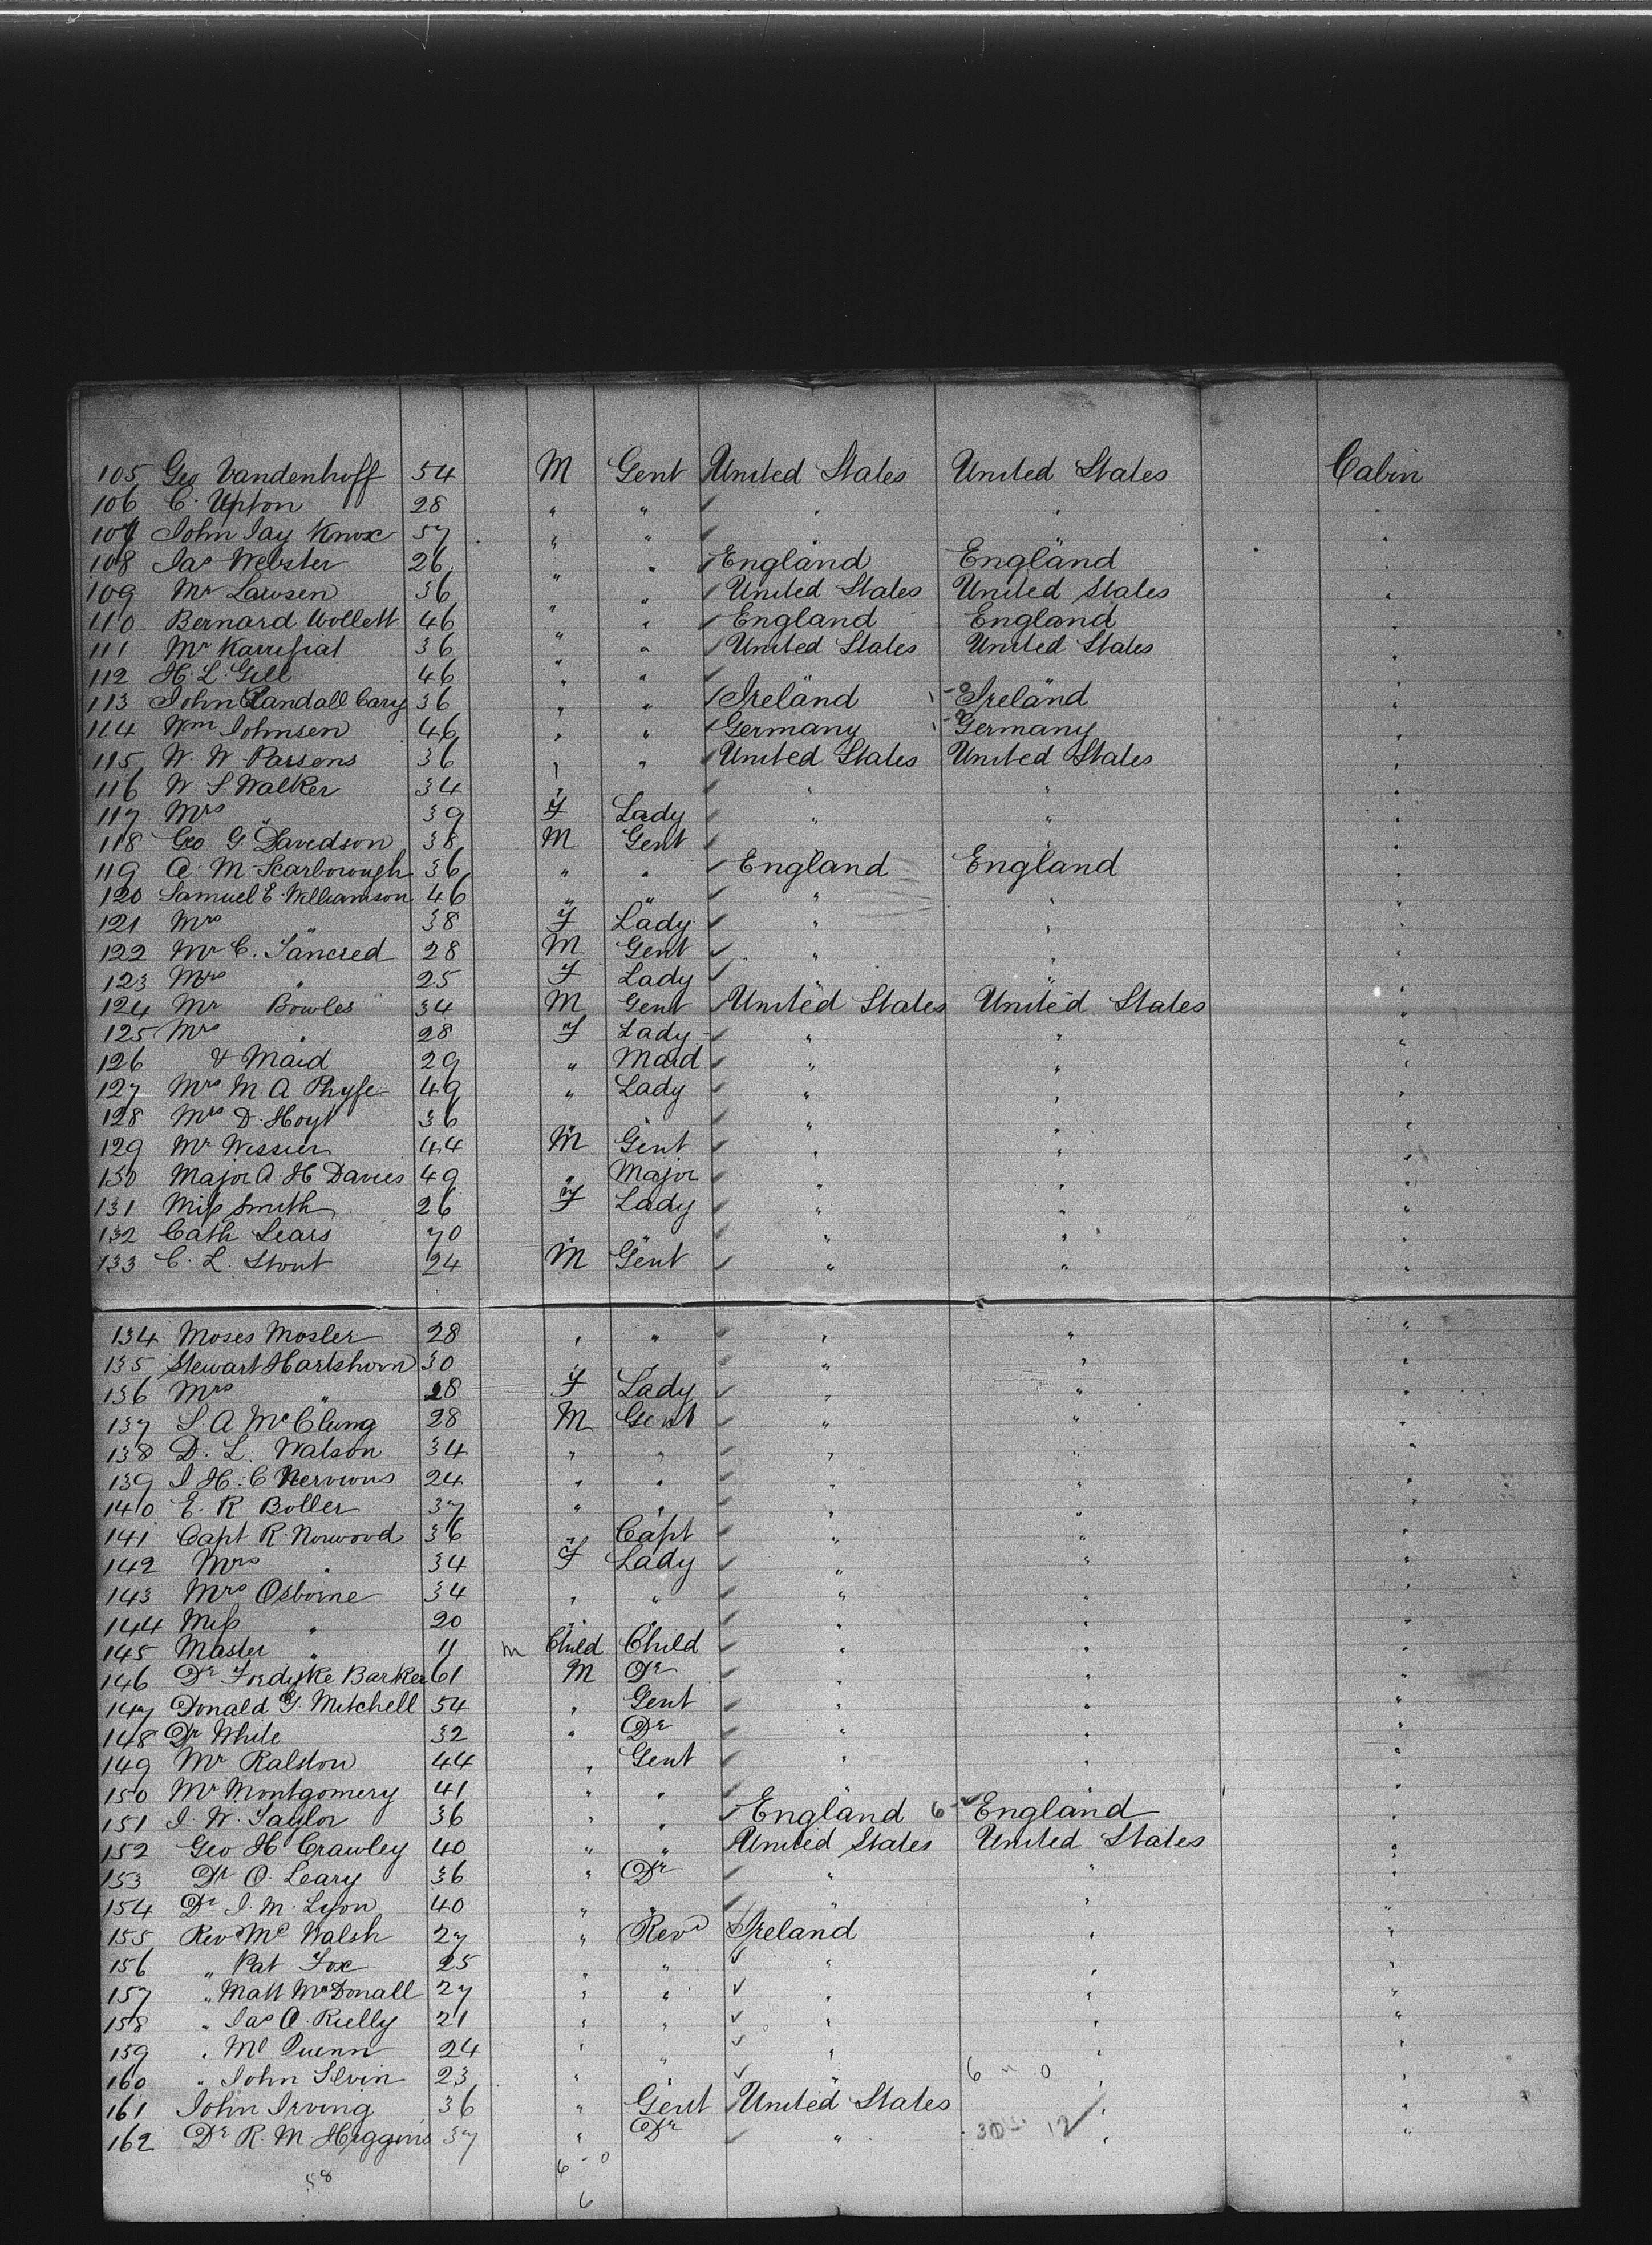 105 Geo Vandenhoff 54 M Gent United States United States Cabin
106 C. Upton 28 " " " " "
107 John Jay Knox 57 " " "
108 Jas Webster 26 " " England England "
109 Mr Lawsen 36 " " United States United States "
110 Bernard Wollett 46 " " England England "
111 Mr 36 " " United States United States "
112 H. L. Gill 46 " " "
113 John Randall Cary 36 " " Ireland Ireland "
114 Wm Johnsen 46 " " Germany Germany "
115 W. W. Parsons 36 " " United States United States "
116 W S Walker 34 " " " " "
117 Mrs " 39 F Lady " " "
118 Geo G. Davidson 38 M Gent " " "
119 A. M. Scarborough 36 " " England England "
120 Samuel E. Williamson 46 " " " " "
121 Mrs " 38 F Lady " " "
122 Mr C. Tancred 28 M Gent " " "
123 Mrs " 25 F Lady " " "
124 Mr Bowles 34 M Gent United States United States "
125 Mrs " 28 F Lady " " "
126 & Maid 29 " Maid " " "
127 Mrs M A Phyfe 49 " Lady " " "
128 Mrs D. Hoyt 36 " " " " "
129 Mr Wessier 44 M Gent " " "
130 Major A H Davies 49 " Major " " "
131 Miss Smith 26 F Lady " " "
132 Cath Sears 70 " " " " "
133 C. L. Stout 24 M Gent " " "
134 Moses Mosler 28 " " " " "
135 Stewart Hartshorn 30 " " " " "
136 Mrs " 28 F Lady " " "
137 S. A McClung 28 M Gent " " "
138 D. L. Watson 34 " " " " "
139 J. H. C 24 " " " " "
140 E. R Boller 37 " " " " "
141 Capt R. Norwood 36 " Capt " " "
142 Mrs " 34 F Lady " " "
143 Mrs Osborne 34 " " " " "
144 Miss " 20 " " " " "
145 Master " 11 m Child Child " " "
146 Dr Fordyke Barker 61 M Dr " " "
147 Donald G. Mitchell 54 " Gent " " "
148 Dr White 32 " Dr " " "
149 Mr Ralston 44 " Gent " " "
150 Mr Montgomery 41 " " " " "
151 J. W. Taylor 36 " " England 6 - England "
152 Geo H Crawley 40 " " United States United States "
153 Dr O. Leary 36 " Dr " " "
154 Dr J. M. Lyon 40 " " " " "
155 Rev Ml Walsh 27 " Revd Ireland " "
156 " Pat Fox 25 " " " " "
157 " Matt McDonall 27 " " " " "
158 " Jas A. Rielly 21 " " " " "
159 " Ml Quenn 24 " " " " "
160 " John Slvin 23 " " " 6 - 0 " "
161 John Irving 36 " Gent United States " "
162 Dr R. M Higgins 37 " Dr " 30 - 12 " "
6 - 0
58
6